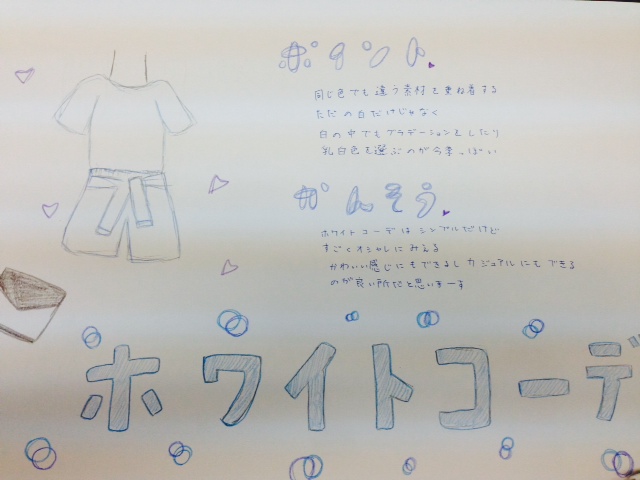 ポイント
同じ色でも違う素材を重ね着する
ただの白だけじゃなく
白の中でもグラデーションをしたり
乳白色を選ぶのが今季っぽい
かんそう
ホワイトコーデは シンプルだけど
すごくオシャレにみえる
かわいい感じにもできるし カジュアルにもできる
のが良い所だと思いまーす
ホワイトコーデ